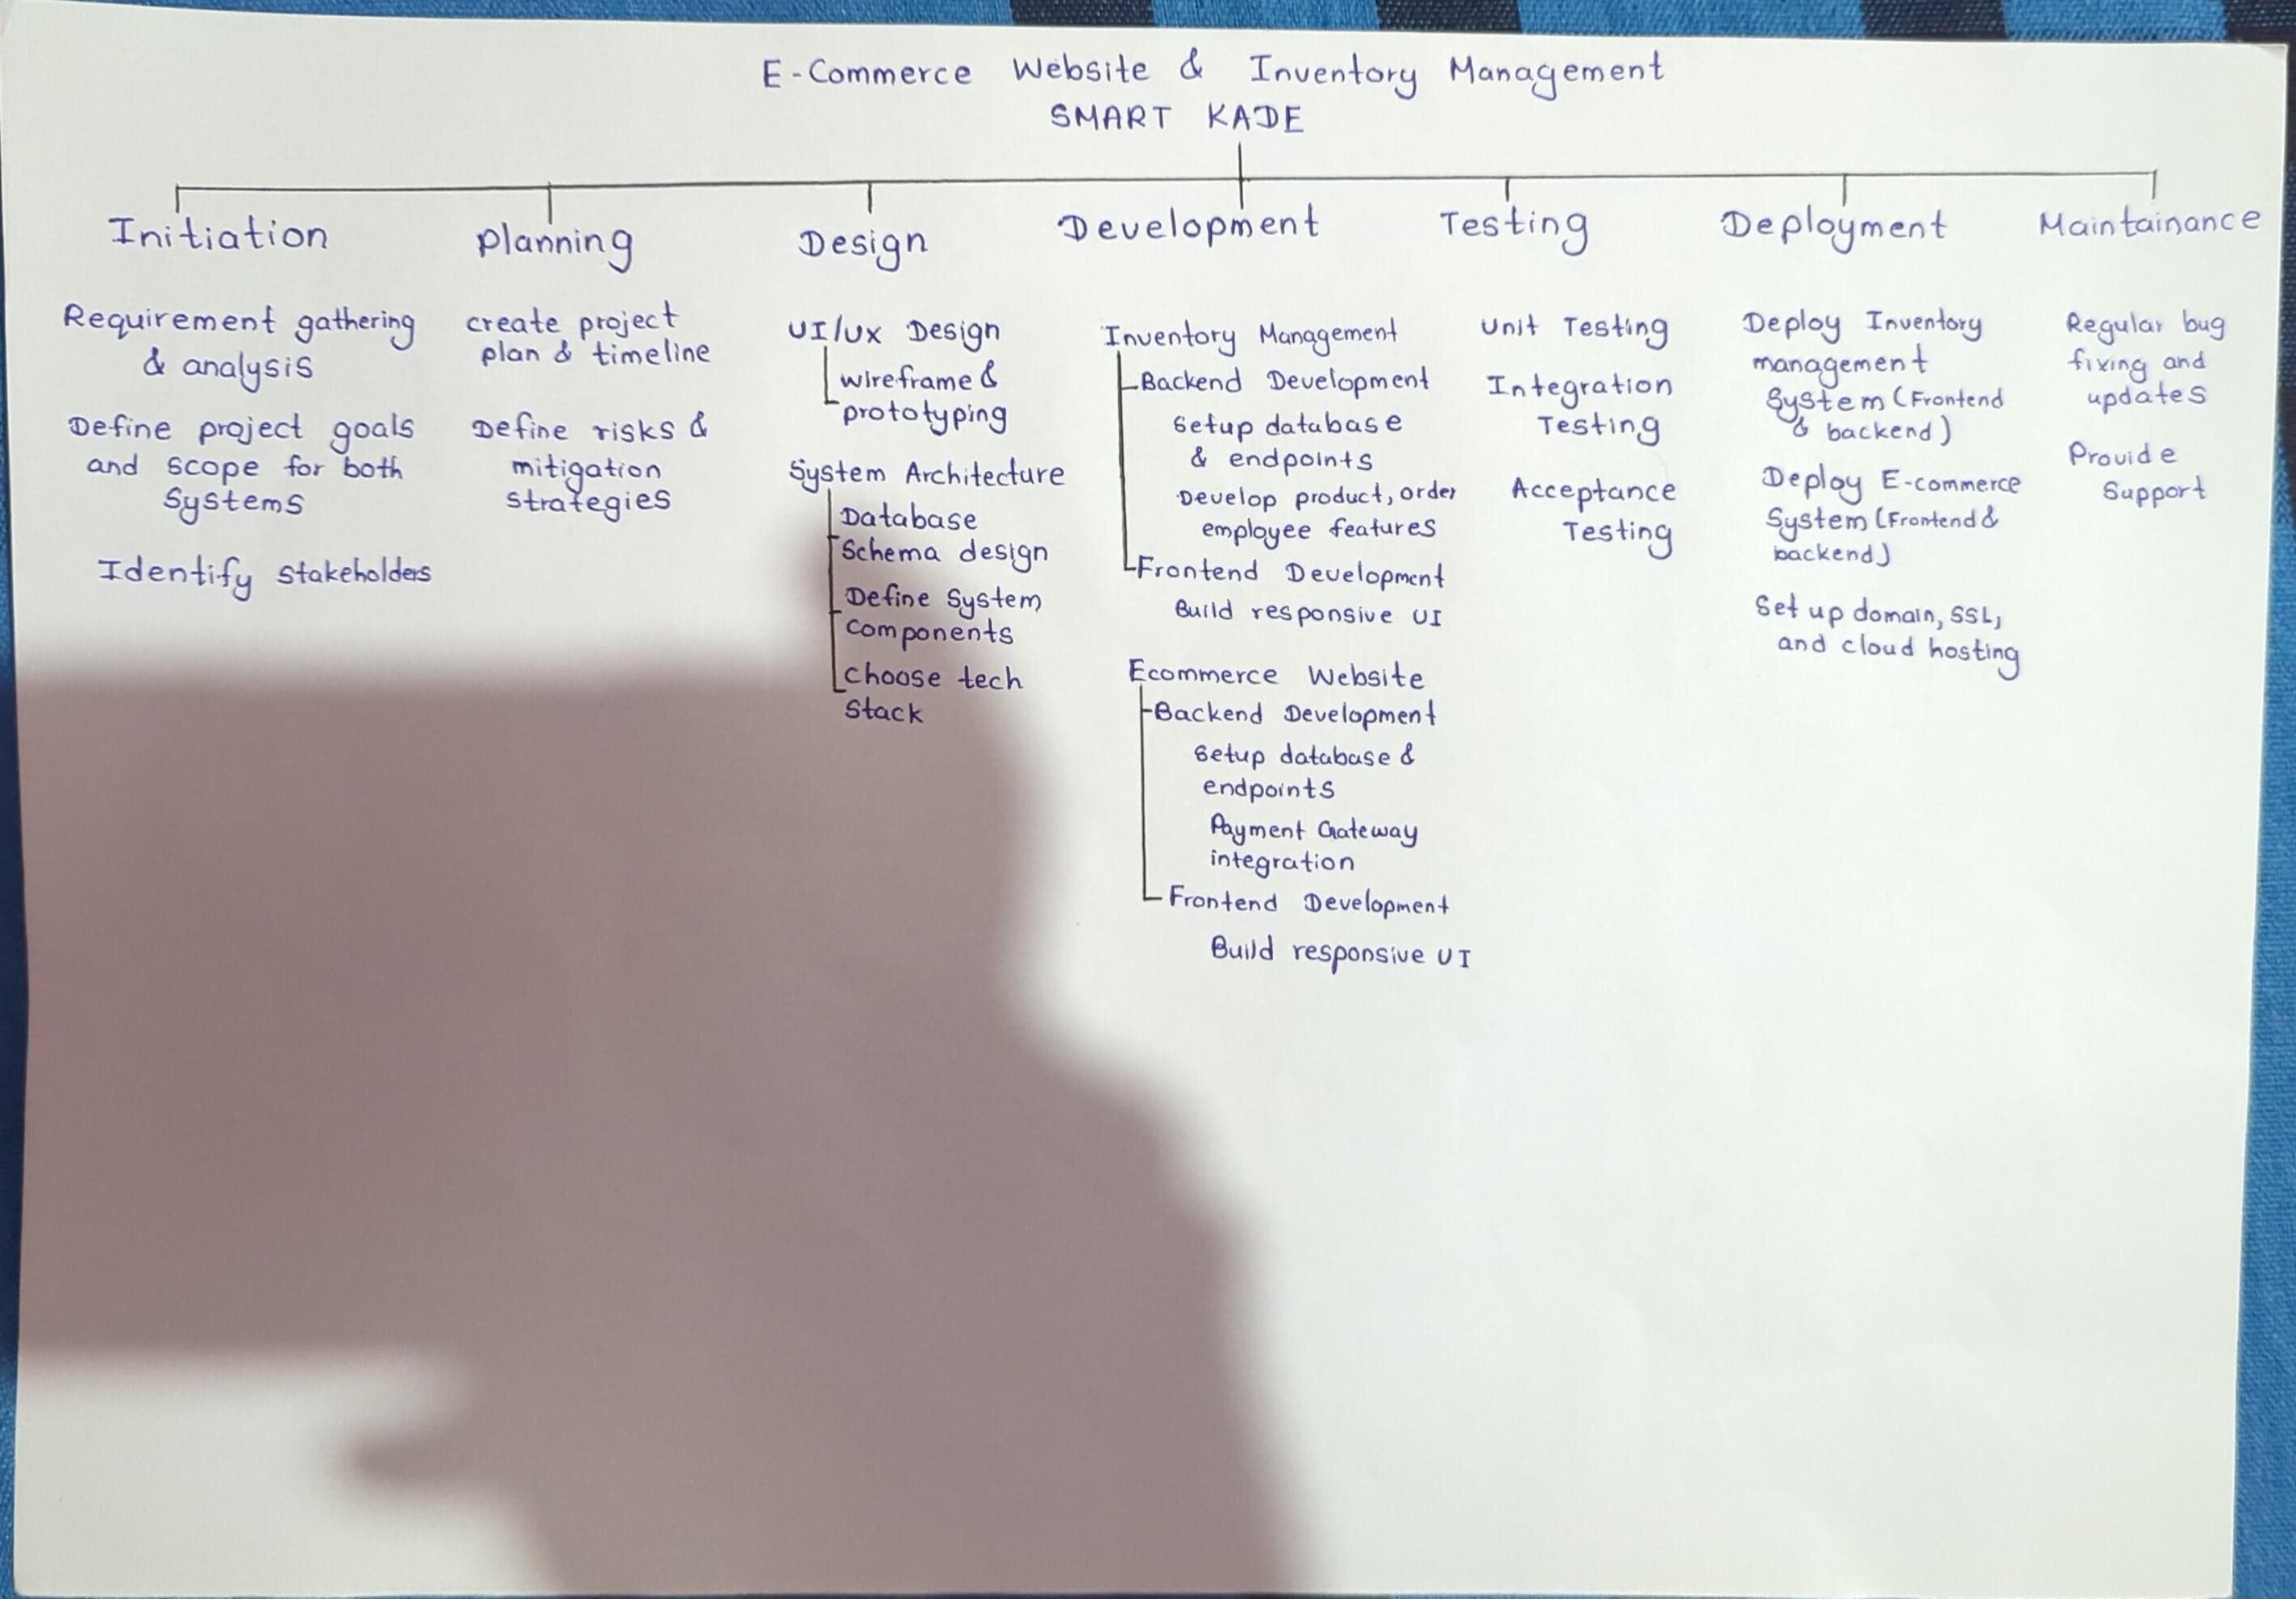 E-Commerce Website & Inventory Management
SMART KADE
Initiation
Requirement gathering
& analysis
Define project goals
and scope for both
Systems
Identify stakeholders
planning
create project
plan & timeline
Define risks &
mitigation
strategies
Design
UI/UX Design
wireframe &
prototyping
System Architecture
Database
Schema design
Define System
components
choose tech
stack
Development
Inventory Management
Backend Development
setup database
& endpoints
Develop product, order
employee features
Frontend Development
Build responsive UI
Ecommerce Website
Backend Development
setup database &
endpoints
Payment Gateway
integration
Frontend Development
Build responsive UI
Testing
Unit Testing
Integration
Testing
Acceptance
Testing
Deployment
Deploy Inventory
management
System (Frontend
& backend)
Deploy E-commerce
System (Frontend &
backend)
Set up domain, SSL,
and cloud hosting
Maintainance
Regular bug
fixing and
updates
Provide
Support